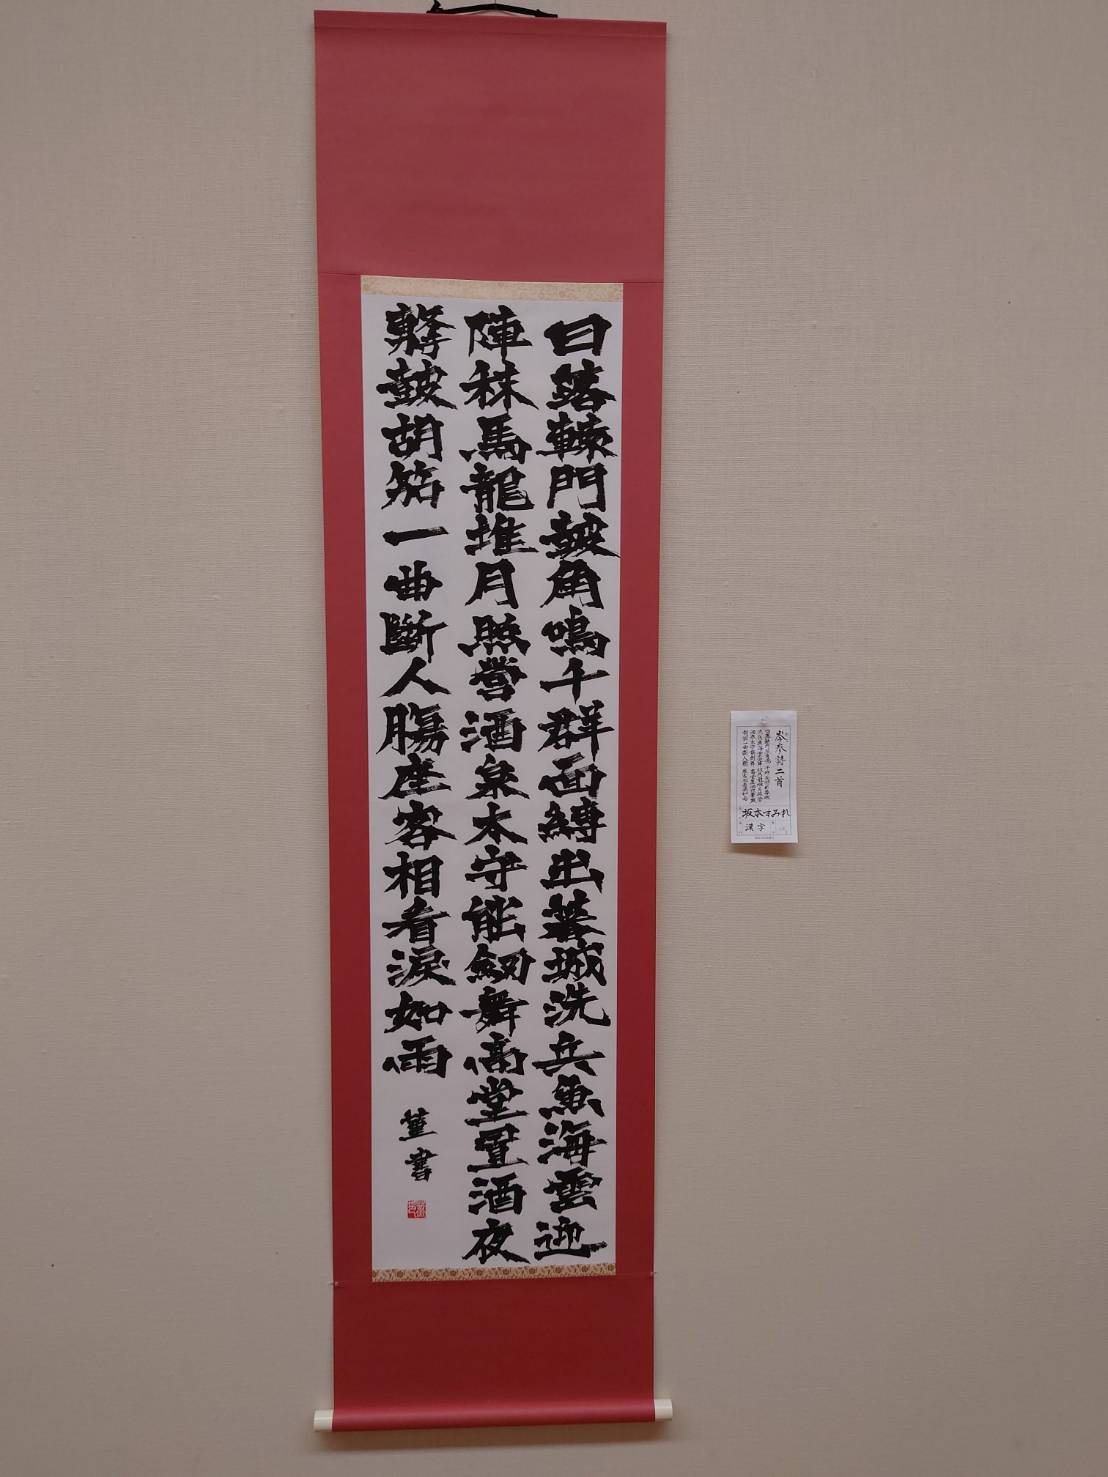 日落轅門鼓角鳴千群面縛出蕃城洗兵魚海雲迎
陣秣馬龍堆月照營酒泉太守能劔舞高堂置酒夜
擊鼓胡笳一曲斷人腸座客相看淚如雨
菫書
岑参詩二首
坂本すみれ
漢字